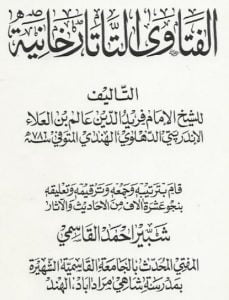 الفتاوى التاتارخانية
التاليف
للشيخ الامام فريد الدين عالم بن العلاء
الاندريتي الدهلوي الهندي المتوفى ٧٨٦هـ
قام بترتيبه وجمعه وترقيمه وتعليقه
بنحو عشرة آلاف من الاحاديث والآثار
شبير احمد القاسمي
المفتي المحدث بالجامعة القاسمية الشهيرة
بمدرسة شاهي مراد آباد، الهند